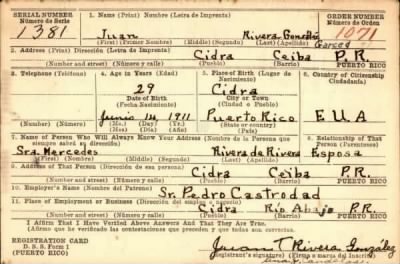 SERIAL NUMBER 1. Name (Print) Nombre (Letra de Imprenta) ORDER NUMBER
Número de Serie Número de Orden
1381 Juan Rivera González 1071
(First) (Primer Nombre) (Middle) (Segundo) (Last) (Apellido)
2. Address (Print) Dirección (Letra de Imprenta)
Cidra Ceiba P.R.
(Number and street) (Número y calle) (Town) (Pueblo) (Barrio) PUERTO RICO
3. Telephone (Teléfono) 4. Age in Years (Edad) 5. Place of Birth (Lugar de Nacimiento) 6. Country of Citizenship
Ciudadanía
29 Cidra
Date of Birth City or Town
(Fecha Nacimiento) (Ciudad o Pueblo)
Junio 14, 1911 Puerto Rico E U A
(Mo.) (Day) (Yr.) State or country)
(Mes) (Día) (Año)
7. Name of Person Who Will Always Know Your Address (Nombre de la Persona que siempre sabrá su dirección) 8. Relationship of That Person (Parentesco)
Sra. Mercedes Rivera de Rivera Esposa
(First) (Nombre) (Middle) (Segundo) (Last) (Apellido)
9. Address of That Person (Dirección de esa persona)
Cidra Ceiba P.R.
(Number and street) (Número y calle) (Town) (Pueblo) (Barrio) PUERTO RICO
10. Employer's Name (Nombre del Patrono)
Sr. Pedro Castrodad
11. Place of Employment or Business (Dirección del empleo o negocio)
Cidra Río Abajo P.R.
(Number and street) (Número y calle) (Town) (Pueblo) (Barrio) PUERTO RICO
I Affirm That I Have Verified Above Answers And That They Are True.
(Afirmo que he verificado las contestaciones que preceden y que todas son ciertas).
REGISTRATION CARD
D. S. S. Form 1
(PUERTO RICO)
Juan T Rivera González
(Registrant's signature) (Firma o marca del Inscrito)